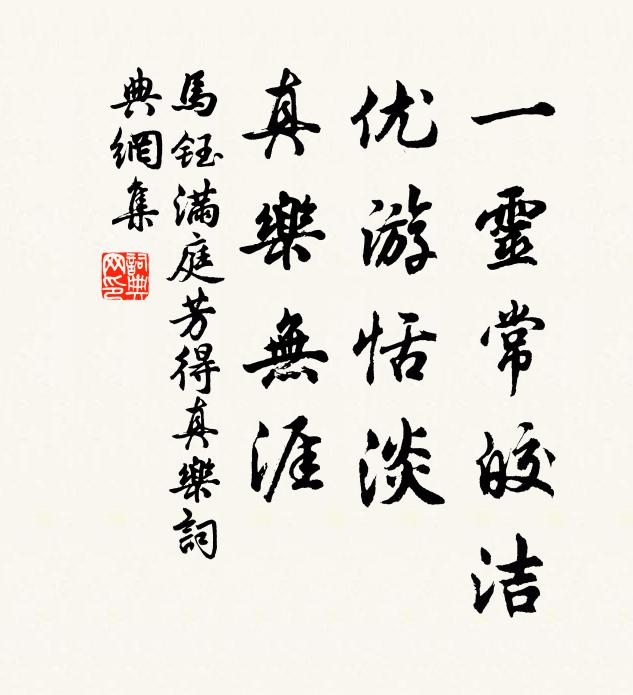 一靈常皎洁
优游恬淡
真樂無涯
馬鈺满庭芳得真樂詞
典網集
詞典网印